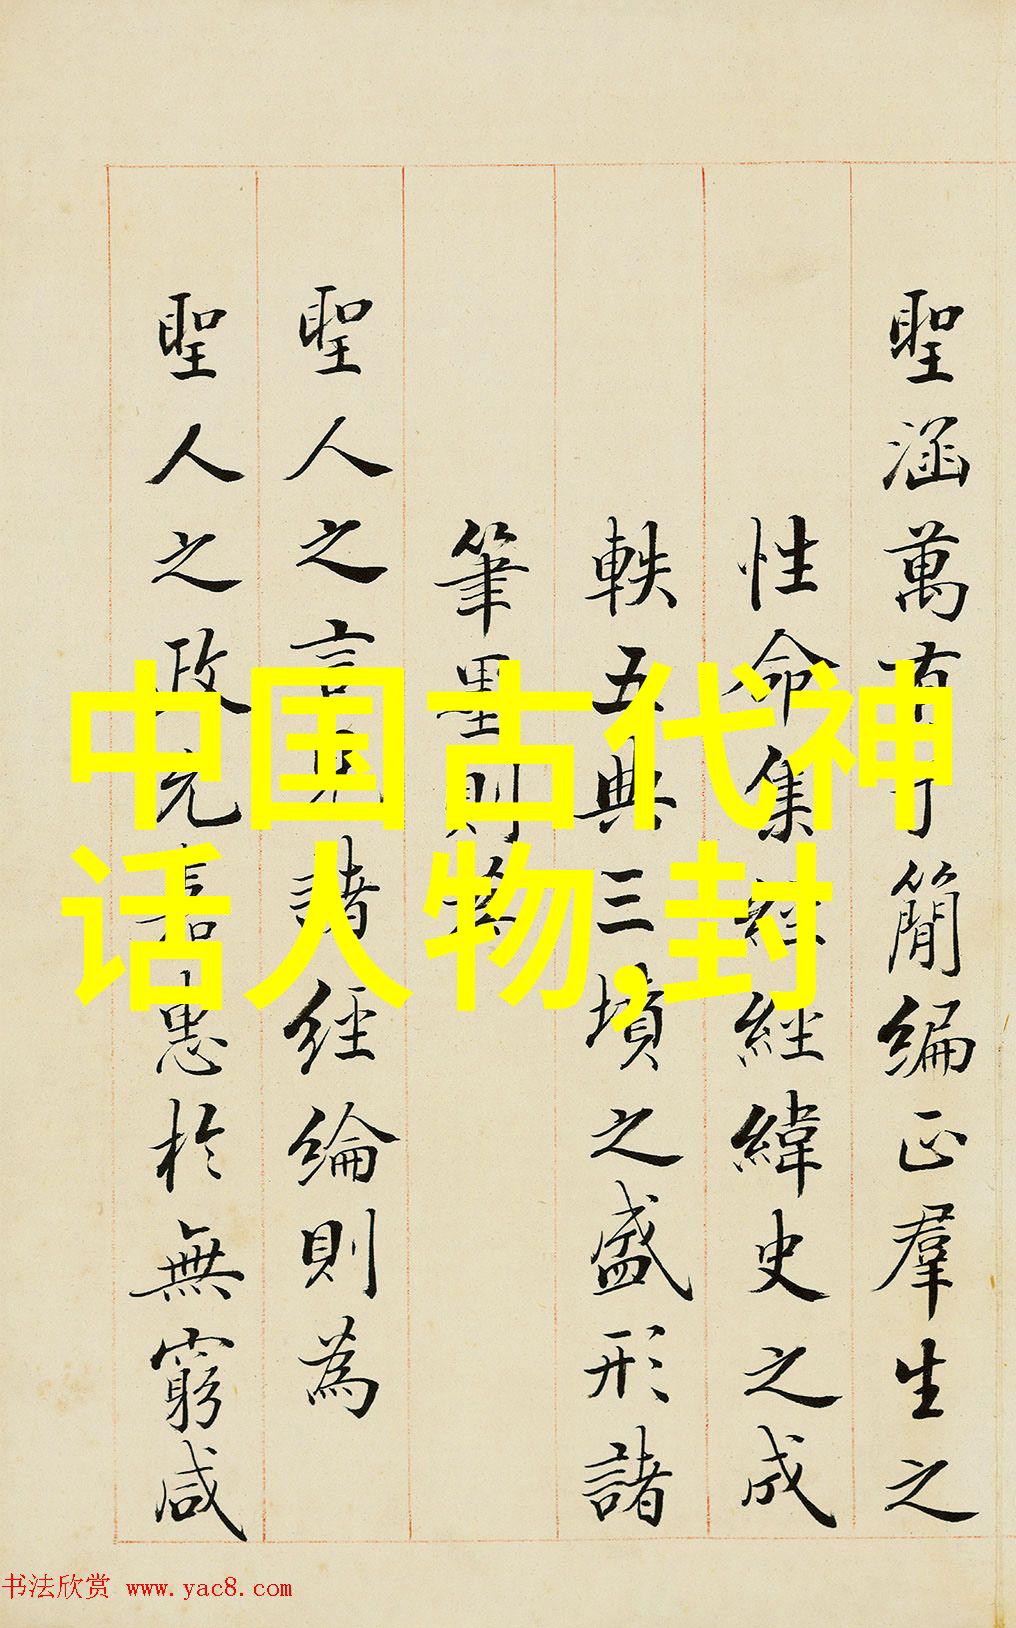 聖涵萬有于簡編正羣生之
性命集經緯史之成
軼五典三墳之盛形諸
筆墨則為
聖人之言見諸經綸則為
聖人之政允嘉惠於無窮咸
中国古代神
话人物,封
书法欣赏 www.yac8.com